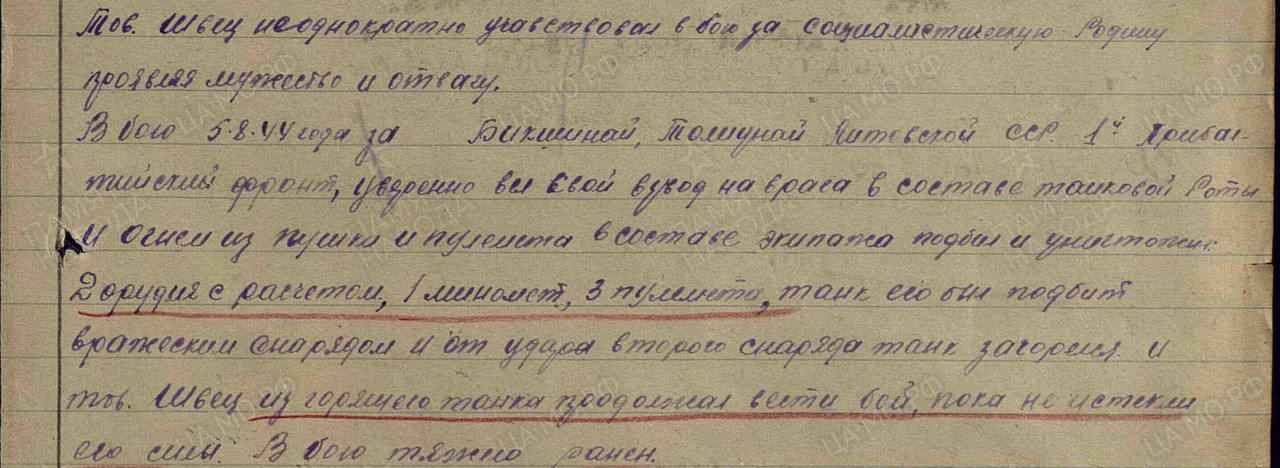 Тов. Швец неоднократно учавствовал в бою за социалистическую Родину
проявляя мужество и отвагу.
В бою 5.8.44 года за Бикшинай, Томцунай Литовской ССР. 1й Прибал-
тийский фронт, уверенно вел свой взвод на врага в составе танковой Роты
и огнем из пушки и пулемета в составе экипажа подбил и уничтожил
2 орудия с расчетом, 1 миномет, 3 пулемета, танк его был подбит
вражеским снарядом и от удара второго снаряда танк загорелся. и
тов. Швец из горящего танка продолжал вести бой, пока не истекли
его силы. В бою тяжело ранен.